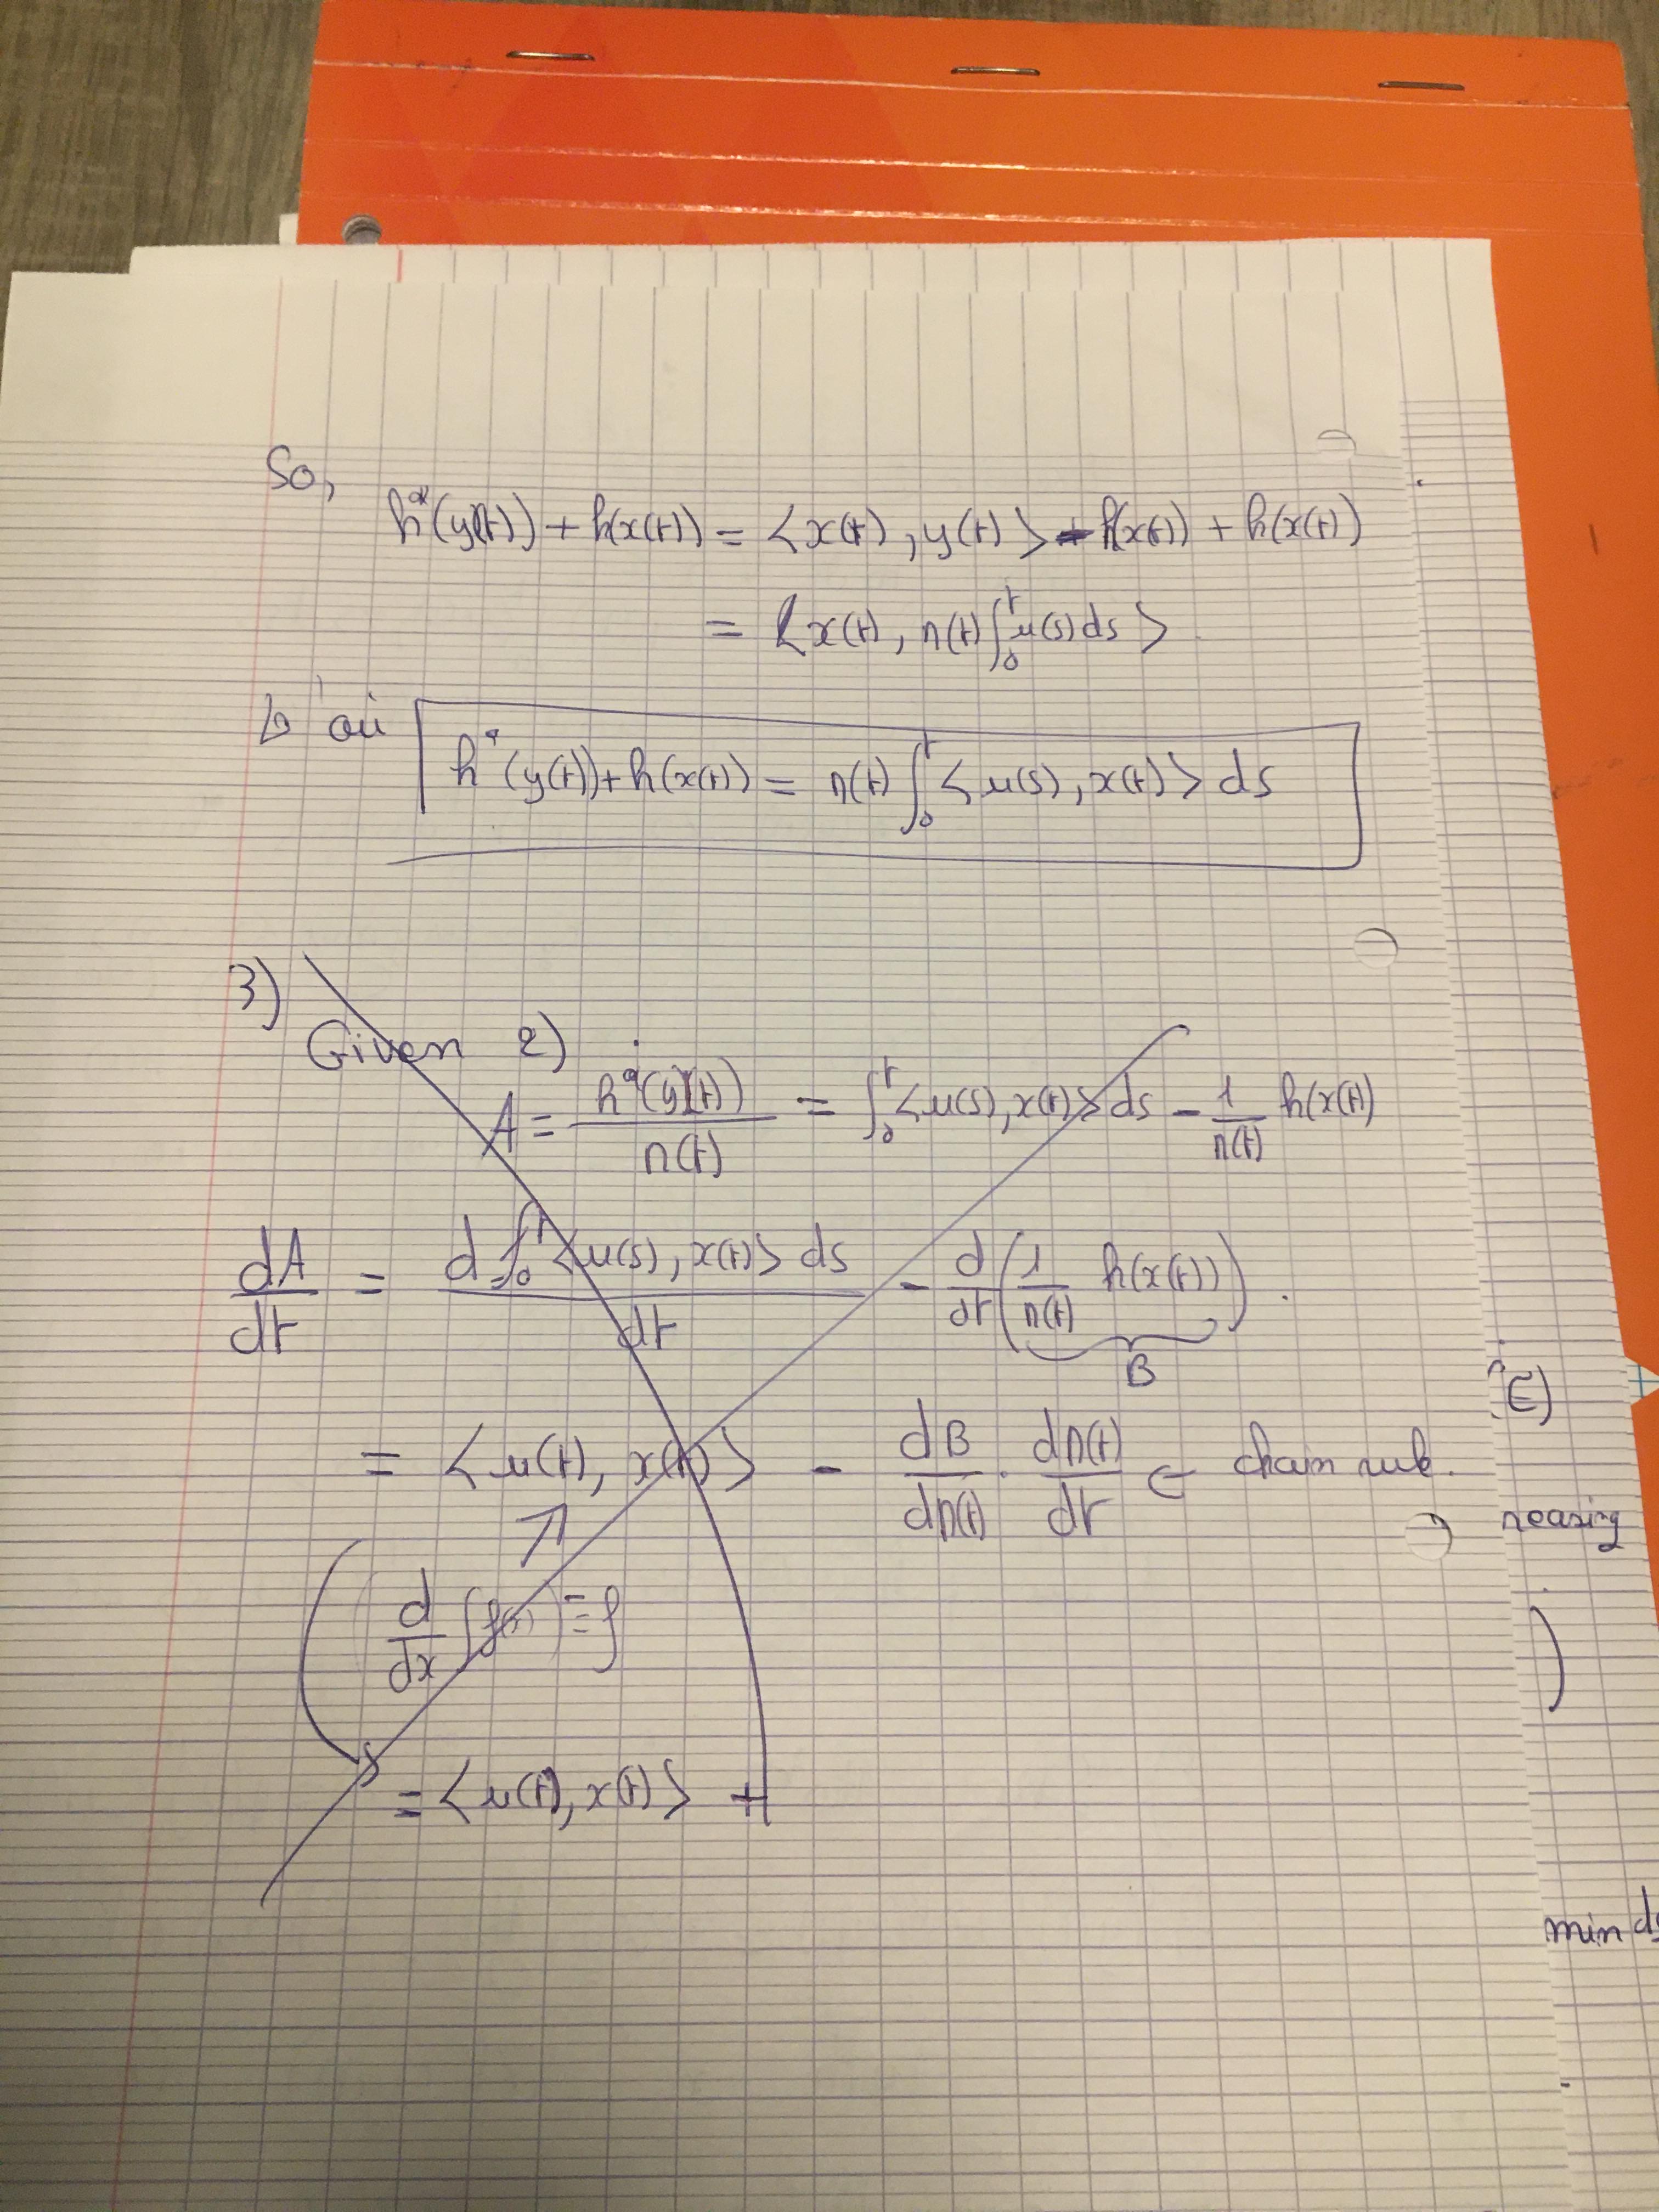 So,
h*(y(t)) + h(x(t)) = <x(t), y(t)> - h(x(t)) + h(x(t))
= <x(t), η(t) ∫₀ᵗ u(s) ds>
D'où
h*(y(t)) + h(x(t)) = η(t) ∫₀ᵗ <u(s), x(t)> ds
3)
Given 2)
A = h*(y(t)) / η(t) = ∫₀ᵗ <u(s), x(t)> ds - 1/η(t) h(x(t))
dA/dt = d ∫₀ᵗ <u(s), x(t)> ds / dt - d/dt (1/η(t) h(x(t))) .
B
= <u(t), x(t)> - dB/dη(t) · dη(t)/dt ← chain rule.
d/dx (∫ f(x)) = f
= <u(t), x(t)> +
E)
reasing
)
min